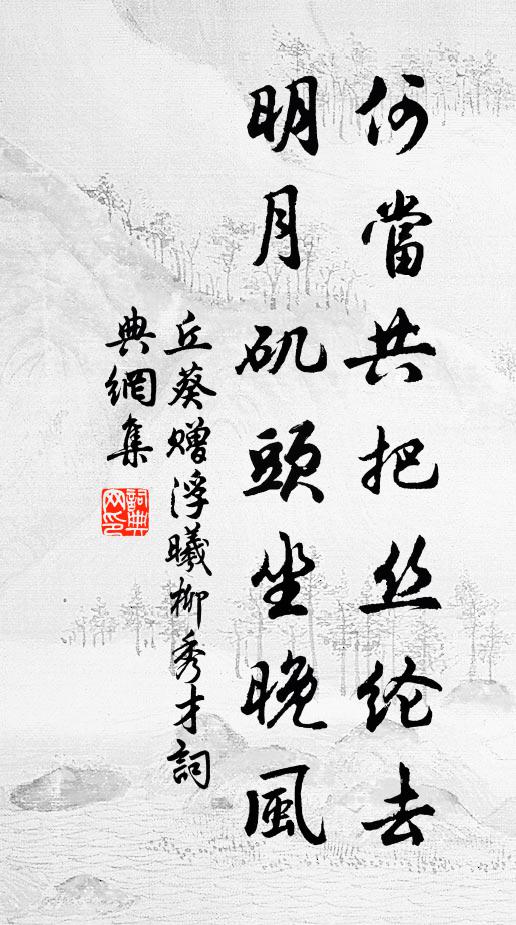 何當共把丝纶去
明月矶頭坐晚風
丘葵赠浮曦柳秀才詞
典網集
詞典
网印